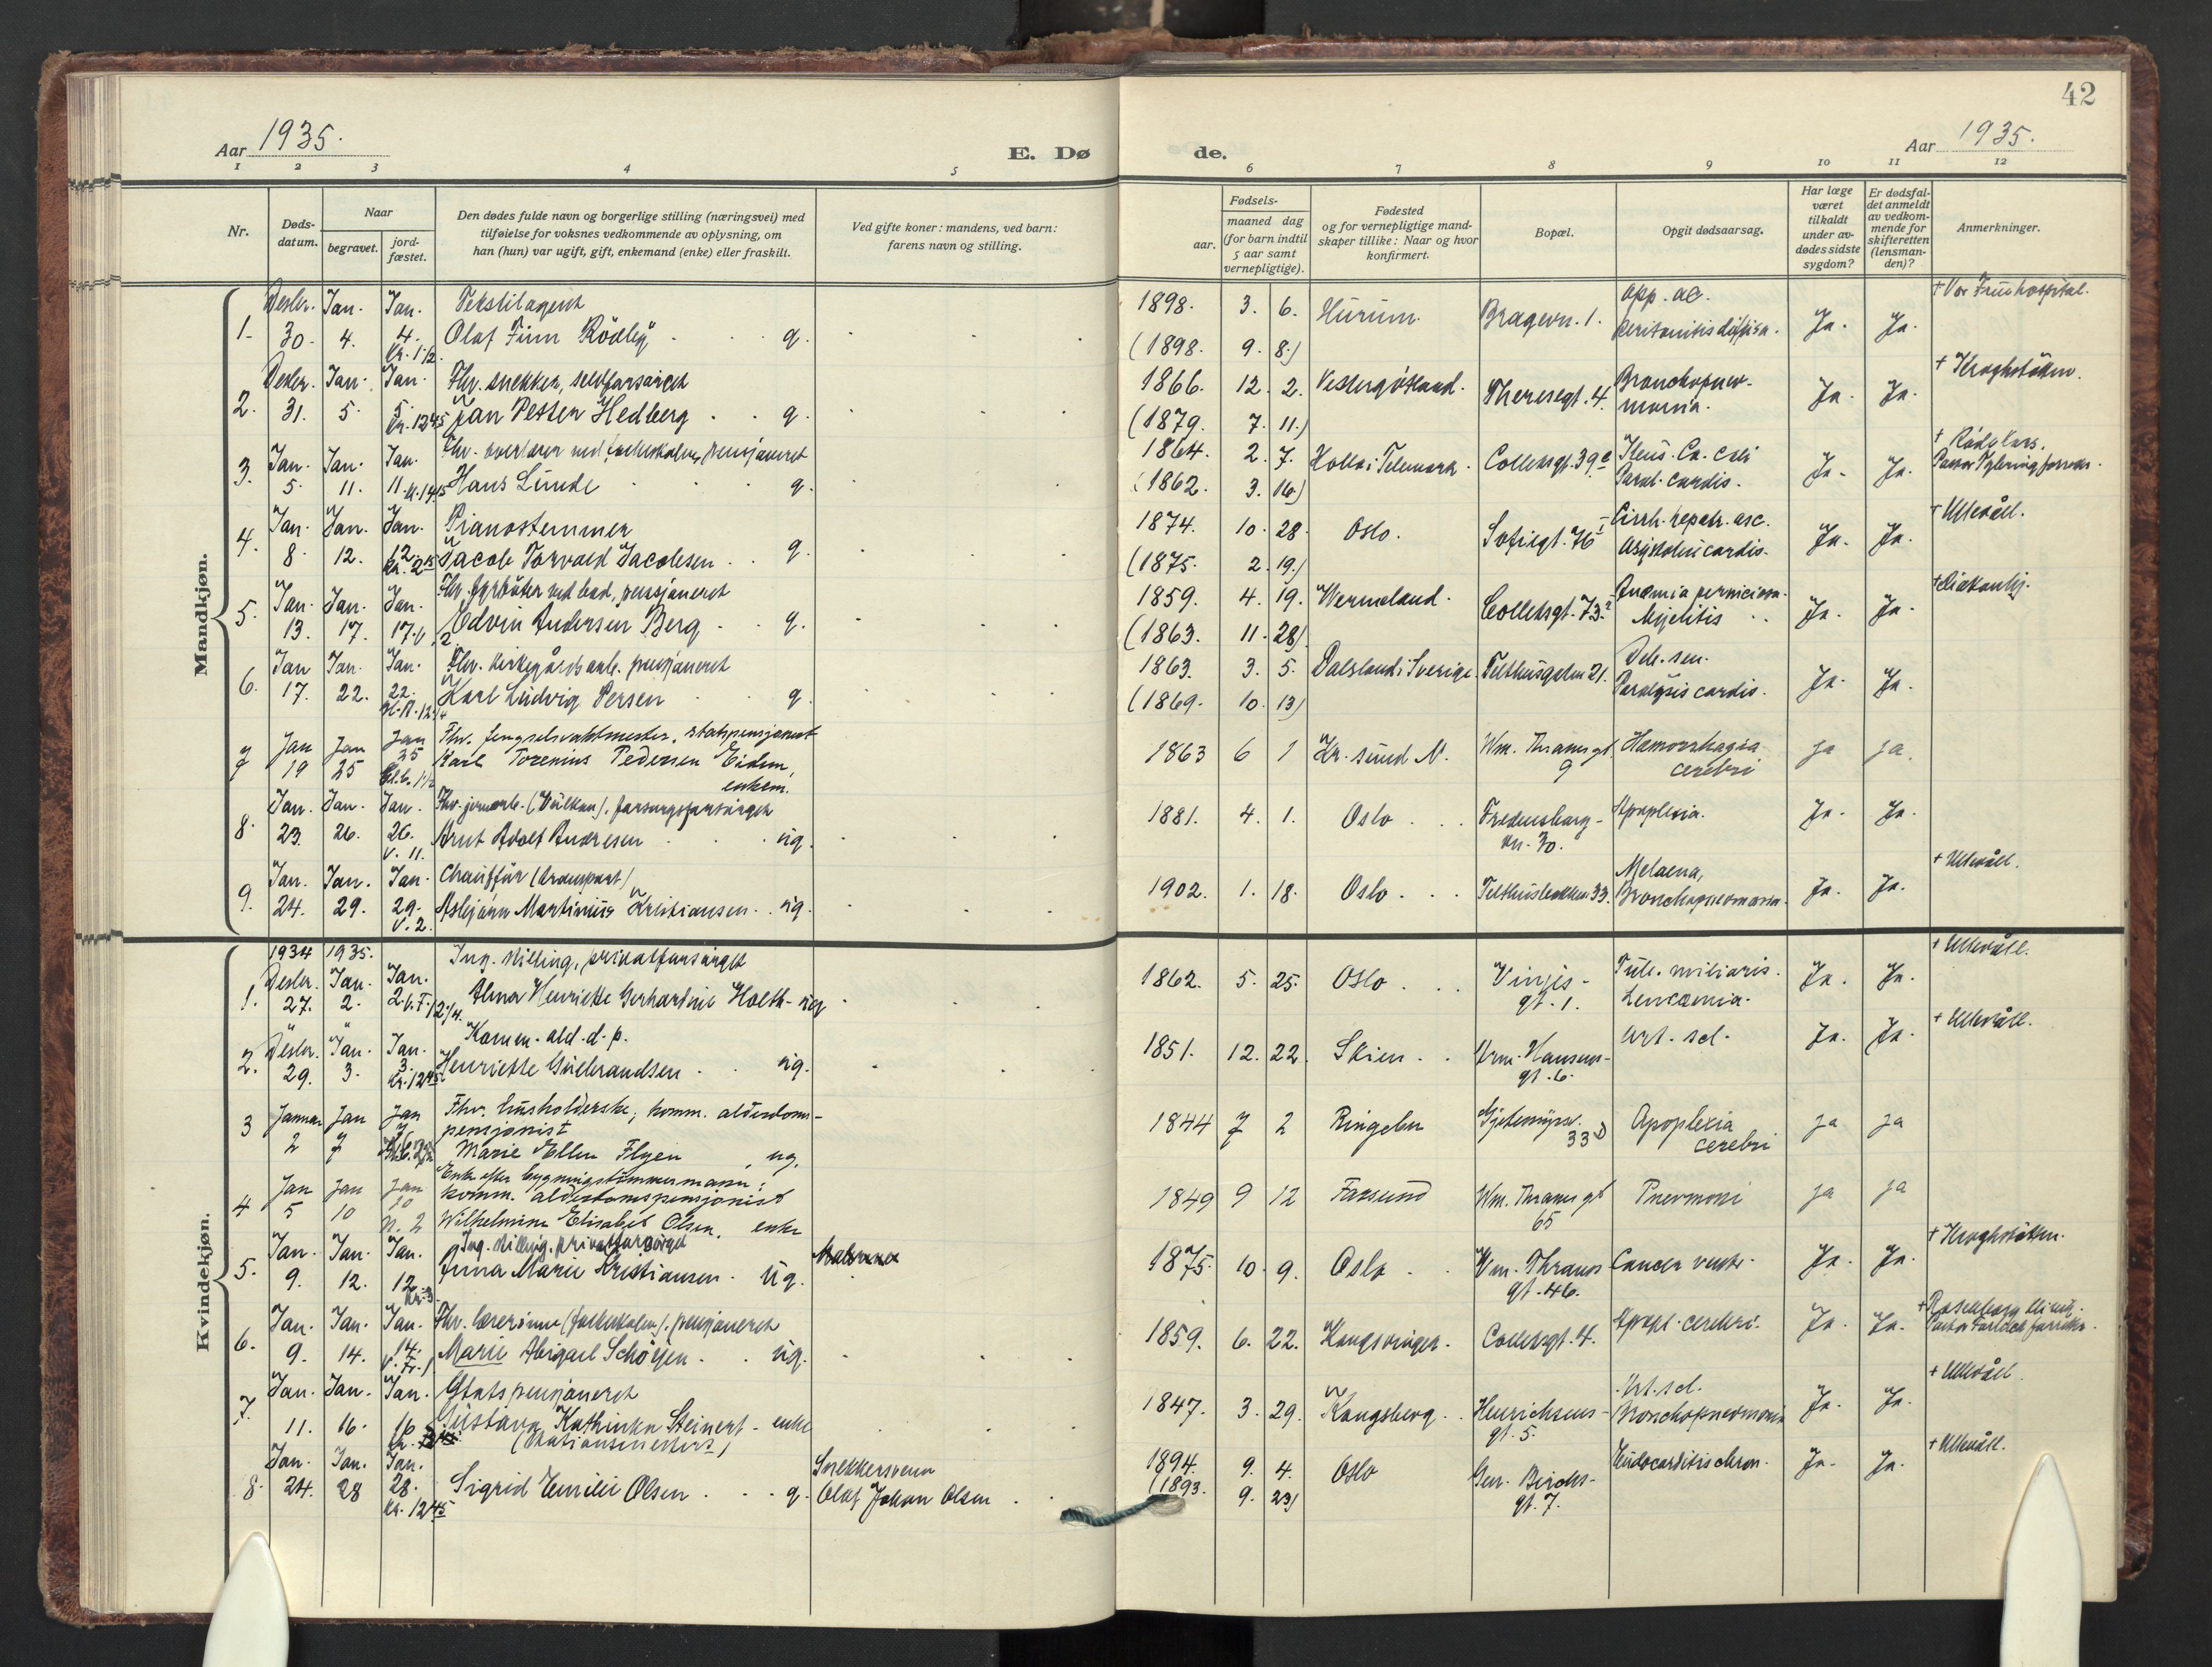 42
Aar 1935.
E. Dø
de.
Aar 1935.
1 2 3 4 5 6 7 8 9 10 11 12
Nr.
Døds-
datum.
Naar
begravet.
jord-
fæstet.
Den dødes fulde navn og borgerlige stilling (næringsvei) med
tilføielse for voksnes vedkommende av oplysning, om
han (hun) var ugift, gift, enkemand (enke) eller fraskilt.
Ved gifte koner: mandens, ved barn:
farens navn og stilling.
Fødsels-
aar.
maaned dag
(for barn indtil
5 aar samt
vernepligtige).
Fødested
og for vernepligtige mand-
skaper tillike: Naar og hvor
konfirmert.
Bopæl.
Opgit dødsaarsag.
Har læge
været
tilkaldt
under av-
dødes sidste
sygdom?
Er dødsfal-
det anmeldt
av vedkom-
mende for
skifteretten
(lensman-
den)?
Anmerkninger.
Mandkjøn.
Desbr. Jan. Jan. Tekstilagent
1. 30. 4. 4. Olaf Finn Rödby g.
1898. 3. 6. Hurum. Bragevn. 1. App. ac. Ja. Ja. + Vor Frue hospital.
(1898. 9. 8.)
Desbr. Jan. Jan. Fhv. snekker, selvforsörget
2. 31. 5. 5. Jan Petter Hedberg g.
Kr. 1245
1866. 12. 2. Vestergötland. Theresegt. 4. Bronchopneu-
monia. Ja. Ja. + Kroghstötten.
(1879. 7. 11.)
Jan. Jan. Jan. Fhv. overlærer ved folkeskolen, pensjoneret
3. 5. 11. 11. Hans Lunde g.
1864. 2. 7. Holla i Telemark. Colletsgt. 39 Ileus. Ca. coli
Paral. cordis. Ja. Ja. + Röde Kors.
(1862. 3. 16)
Jan. Jan. Jan. Pianostemmer
4. 8. 12. 12. Jacob Torvald Jacobsen g.
1874. 10. 28. Oslo. Sofiegt. 76 Cirrh. hepatis. asc.
cordis. Ja. Ja. + Ullevål.
(1875. 2. 19.)
Jan. Jan. Jan. Fhv. fyrböter ved bad, pensjoneret
5. 13. 17. 17. Edvin Andersen Berg g.
1859. 4. 19. Wermeland. Colletsgt. 73 Anæmia perniciosa.
Myelitis Ja. Ja. + Diakonhj.
(1863. 11. 28)
Jan Jan. Jan. Fhv. kirkegårdsarb. pensjoneret
6. 17. 22. 22. Karl Ludvig Persen g.
1863. 3. 5. Dalsland i Sverige. Telthusgaten 21. Deb. sen.
Paralysis cordis. Ja. Ja.
(1869. 10. 13)
Jan Jan Jan Fhv. fengselsvaktmester, statspensjonist
7 19 25 25 Karl Torenius Pedersen Eidem,
enkem.
1863 6 1 Kr. sund N. Wm. Thranes gt.
9 Hæmorrhagia
cerebri ja ja.
Jan. Jan. Jan. Fhv. jernarb. (Vulkan), forsorgsforsörget
8. 23. 26. 26. Arnt Adolf Andresen ug.
V. 11.
1881. 4. 1. Oslo Fredensborg-
vn. 30. Apoplexia. Ja. Ja.
Jan. Jan. Jan. Chauffør (transport)
9. 24. 29. 29. Asbjörn Martinius Kristiansen ug.
V. 2.
1902. 1. 18. Oslo Telthusbakken 33. Melaena,
Bronchopneumonia. Ja. Ja. + Ullevål.
Kvindekjøn.
1934 1935.
Desbr. Jan. Jan. Ing. stilling, privatforsörget
1. 27. 2. 2. Alma Henriette Gerhardine Holth ug
1862. 5. 25. Oslo Vinjes-
gt. 1. Tub. miliaris.
Leucæmia. Ja. Ja. + Ullevål.
Desbr. Jan. Jan. Komm. ald. d. p.
2. 29. 3. 3. Henriette Gulbrandsen ug.
Kr. 1245
1851. 12. 22. Skien Hrm. Hansens-
gt. 6. Art. scl. Ja. Ja. + Ullevål.
Januar Jan Jan Fhv. husholderske, komm. alderdoms-
pensjonist
3 2 7 7 Marie Ellen Flyen, ug.
1844 7 2 Ringebu Gjetemyrsv.
33 D Apoplexia
cerebri ja ja
Jan Jan Jan Enke efter bygningstömmermann;
komm. alderdomspensjonist
4 5 10 10 Wilhelmine Elisabet Olsen, enke
N. 2
1849 9 12 Farsund Wm. Thranes gt
65 Pnevmoni ja ja
Jan. Jan. Jan. Ing. stilling, privatforsörget
5. 9. 12. 12. Anna Marie Kristiansen. ug.
Kr. 3.
1875. 10. 9. Oslo Wm. Thranes
gt. 46. Cancer ventr. Ja. Ja. + Kroghstötten.
Jan. Jan. Jan. Fhv. lærerinne (folkeskolen), pensjoneret
6. 9. 14. 14. Marie Abigael Schöyen ug.
1859. 6. 22. Kongsvinger. Colletsgt. 4. Apopl. cerebri. Ja. Ja.
Jan. Jan. Jan. Statspensjoneret
7. 11. 16. 16 Gustava Kathinka Steinert - enke
(Stationsmesters)
1847. 3. 29. Kongsberg Henrichsens-
gt. 5. Art. scl.
Bronchopneumoni Ja. Ja. + Ullevål.
Jan. Jan. Jan. Snekkersvenn
8. 24. 28 28. Sigrid Emilie Olsen g. Olaf Johan Olsen
Kr. 1245
1894. 9. 4. Oslo Gen. Birchs-
gt. 7. Endocarditis chron. Ja. Ja. + Ullevål.
(1893. 9. 23)